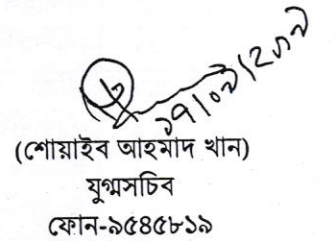 ১৭/০৯/২০১৭
(শোয়াইব আহমাদ খান)
যুগ্মসচিব
ফোন-৯৫৪৫৮১৯